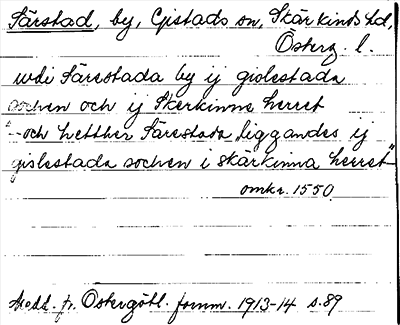 Särstad, by, Gistads sn, Skärkinds hd,
Österg. l.
udi Särestada by ij gislestada
sochen och ij Skerkinna herret
"- och hetther Särestada liggandes ij
gislestada sochen i skärkinna herret"
omkr. 1550.
Medd. fr. Östergötl. fornm. 1913-14 s. 89